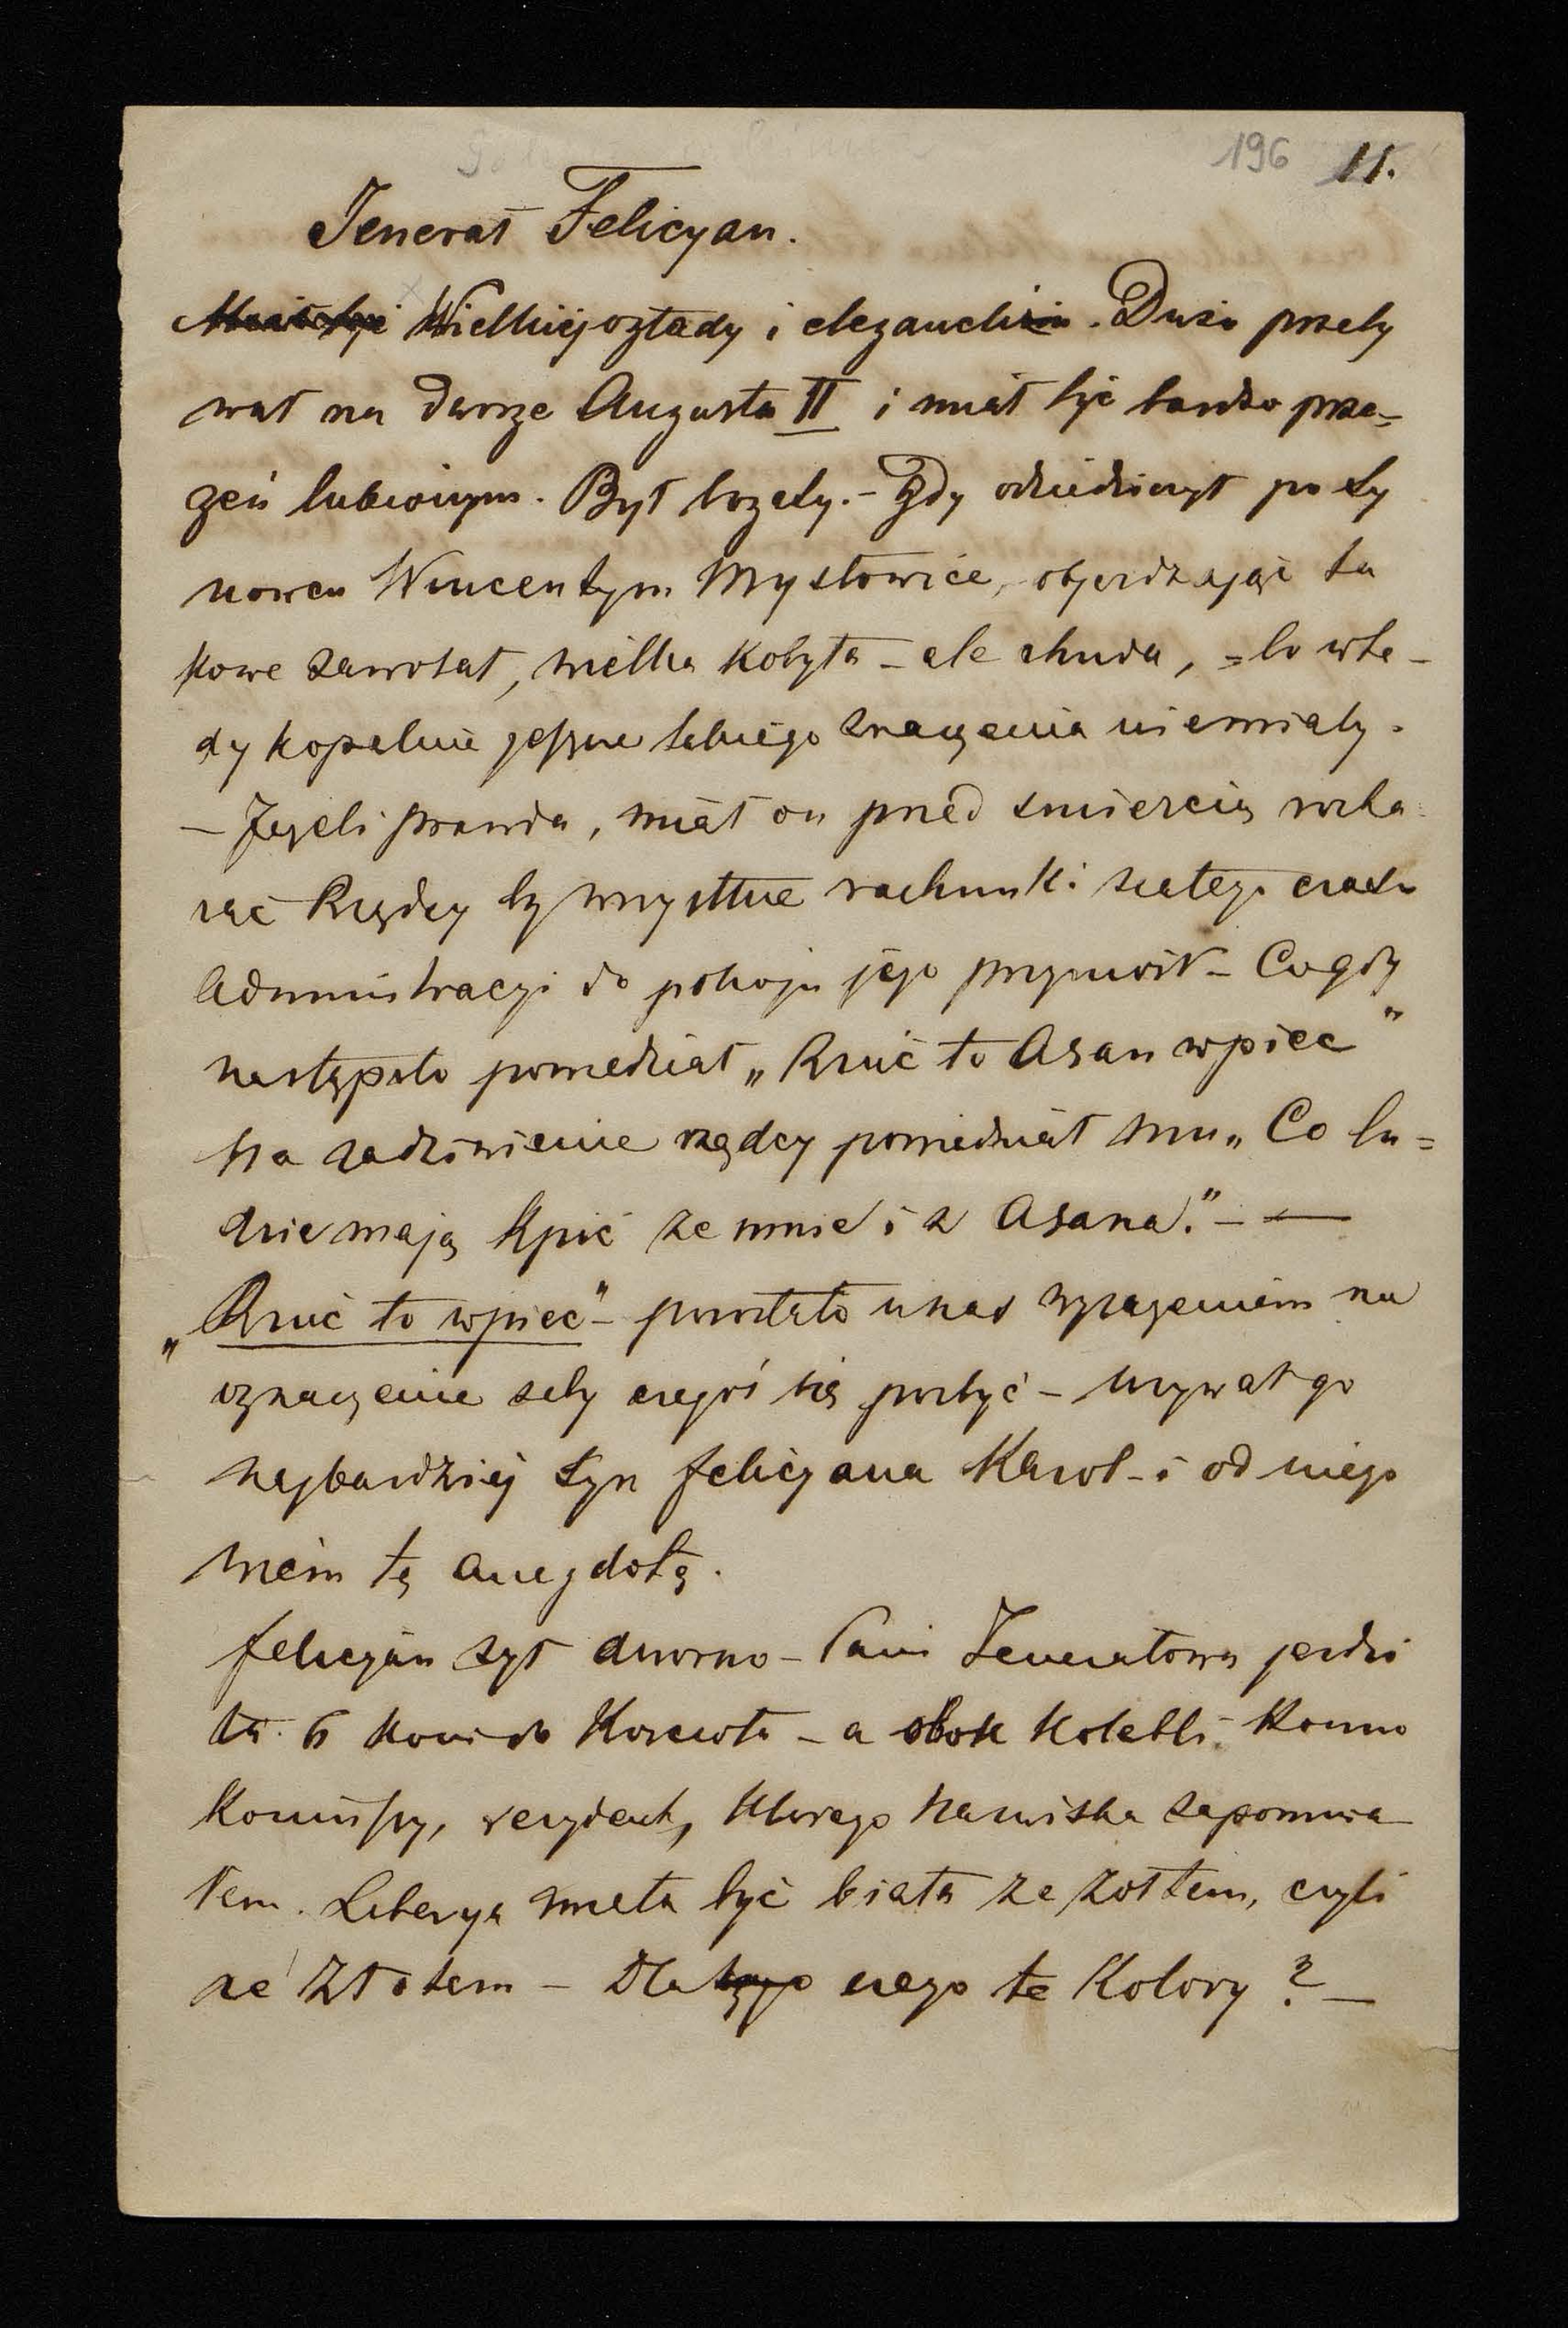 196 11.
Jenerał Felicyan.
Wielkiej ogłady i elegancki. Dużo przeby
wał na dworze Augusta II i miał być bardzo prze=
zeń lubionym. Był bogaty. – Gdy odziedziczył po sy
nowcu Wincentym Mysłowice, objeżdzając ta
kowe zawołał, wielka kobyła – ale chuda, = bo wte –
dy kopalnie jeszcze takiego znaczenia niemiały.
– Jeżeli prawda, miał on przed śmiercią rozka
zać Rządcy by wszystkie rachunki z całego czasu
Administracyi do pokoju jego przyniósł – Co gdy
nastąpiło powiedział „Rzuć to Asan wpiec"
Na zadziwienie rządcy powiedział mu „Co lu=
dzie mają kpić ze mnie i z Asana." – —
„Rzuć to wpiec" – powstało u nas wyrażeniem na
oznaczenie żeby czegoś się pozbyć – używał go
najbardziej syn Felicyana Karol – i od niego
wiem tę anegdotę.
Felicyan żył dworno – Pani Jenerałowa jeździ
ła 6 koni do Kościoła – a obok Kolebki konno
Koniuszy, rezydent, którego nazwiska zapomnia
łem. Liberya miała być biała ze żółtem, czyli
ze złotem – Dla tego czego te Kolory ? –